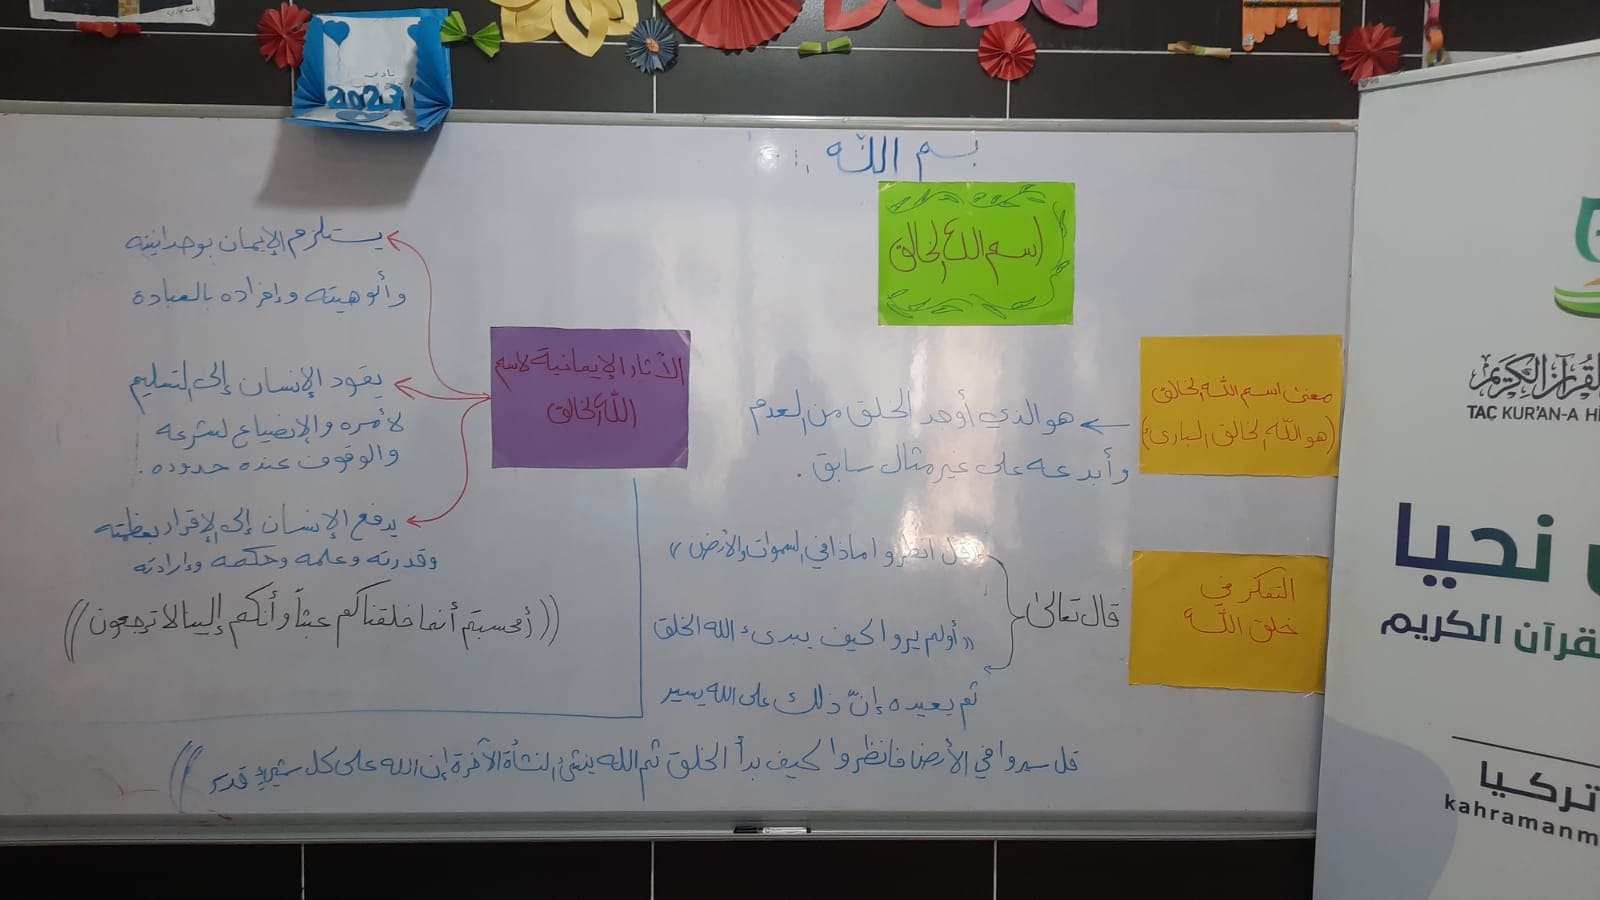 نادي
2023
بسم الله
اسم الله الخالق
معنى اسم الله الخالق
(هو الله الخالق البارئ)
هو الذي أوجد الخلق من العدم
وأبدعه على غير مثال سابق .
التفكر في
خلق الله
قال تعالى
«قل انظروا ماذا في السموات والأرض»
«أولم يروا كيف يبدىء الله الخلق
ثم يعيده إنّ ذلك على الله يسير
قل سيروا في الأرض فانظروا كيف بدأ الخلق ثم الله ينشئ النشأة الآخرة إن الله على كل شيء قدير ))
الآثار الإيمانية لاسم
الله الخالق
يستلزم الإيمان بوحدانيته
وألوهيته وإفراده بالعبادة
يقود الإنسان إلى التسليم
لأمره والإنصياع لشرعه
والوقوف عند حدوده .
يدفع الإنسان إلى الإقرار بعظمته
وقدرته وعلمه وحكمه وإرادته
((أفحسبتم أنما خلقناكم عبثاً وأنكم إلينا لا ترجعون))
القرآن الكريم
TAÇ KUR'AN-A H
نحيا
لقرآن الكريم
تركيا
kahramanm